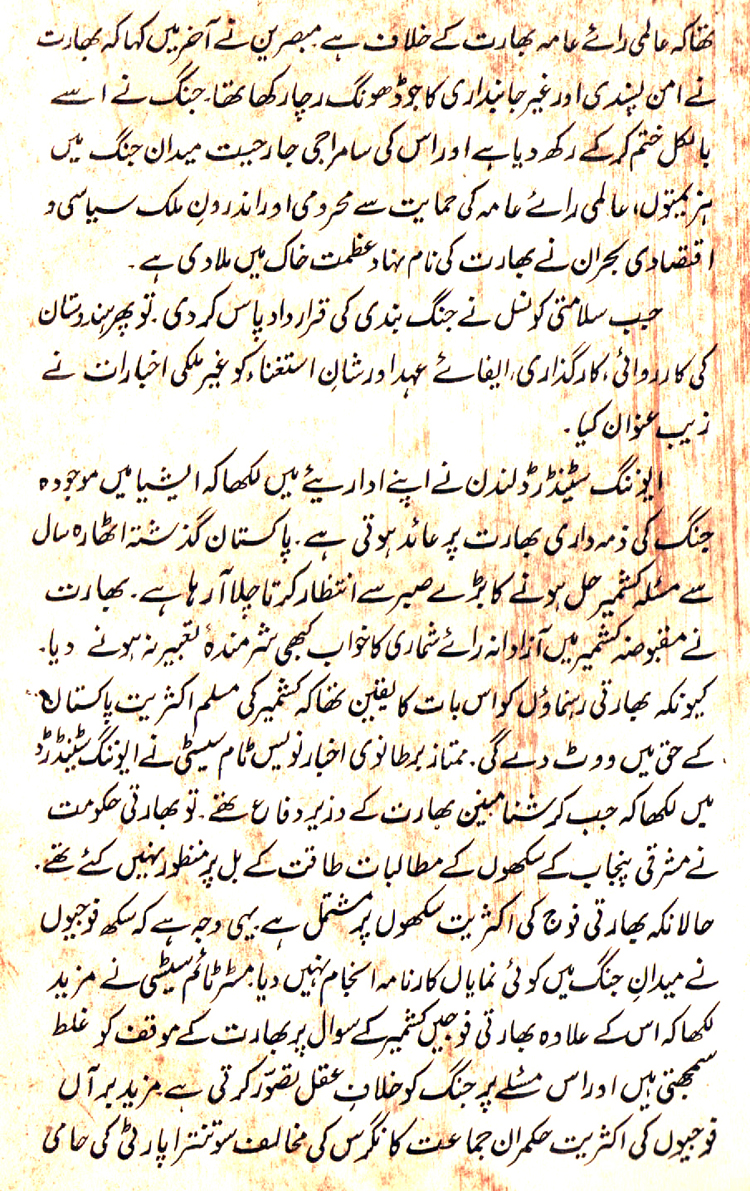 تھا کہ عالمی رائے عامہ بھارت کے خلاف ہے۔ مبصرین نے آخر میں کہا کہ بھارت
نے امن پسندی اور غیر جانبداری کا جو ڈھونگ رچا رکھا تھا۔ جنگ نے اسے
بالکل ختم کر کے رکھ دیا ہے اور اس کی سامراجی جارحیت میدان جنگ میں
ہزیمتوں، عالمی رائے عامہ کی حمایت سے محرومی اور اندرونِ ملک سیاسی و
اقتصادی بحران نے بھارت کی نام نہاد عظمت خاک میں ملا دی ہے۔
جب سلامتی کونسل نے جنگ بندی کی قرارداد پاس کر دی۔ تو پھر ہندوستان
کی کارروائی، کارگذاری، ایفائے عہد اور شانِ استغناء کو غیر ملکی اخبارات نے
زیب عنوان کیا۔
ایوننگ سٹینڈرڈ لندن نے اپنے اداریئے میں لکھا کہ ایشیا میں موجودہ
جنگ کی ذمہ داری بھارت پر عائد ہوتی ہے۔ پاکستان گذشتہ اٹھارہ سال
سے مسئلہ کشمیر حل ہونے کا بڑے صبر سے انتظار کرتا چلا آ رہا ہے۔ بھارت
نے مقبوضہ کشمیر میں آزادانہ رائے شماری کا خواب کبھی شرمندۂ تعبیر نہ ہونے دیا۔
کیونکہ بھارتی رہنماؤں کو اس بات کا یقین تھا کہ کشمیر کی مسلم اکثریت پاکستان
کے حق میں ووٹ دے گی۔ ممتاز برطانوی اخبار نویس ٹام سیٹی نے ایوننگ سٹینڈرڈ
میں لکھا کہ جب کرشنا مینن بھارت کے وزیر دفاع تھے۔ تو بھارتی حکومت
نے مشرقی پنجاب کے سکھوں کے مطالبات طاقت کے بل پر منظور نہیں کئے تھے۔
حالانکہ بھارتی فوج کی اکثریت سکھوں پر مشتمل ہے۔ یہی وجہ ہے کہ سکھ فوجیوں
نے میدانِ جنگ میں کوئی نمایاں کارنامہ انجام نہیں دیا۔ مسٹر ٹائم سیٹی نے مزید
لکھا کہ اس کے علاوہ بھارتی فوجیں کشمیر کے سوال پر بھارت کے موقف کو غلط
سمجھتی ہیں اور اس مسئلے پر جنگ کو خلافِ عقل تصوّر کرتی ہے۔ مزید برآں
فوجیوں کی اکثریت حکمران جماعت کانگرس کی مخالف سوتنترا پارٹی کی حامی